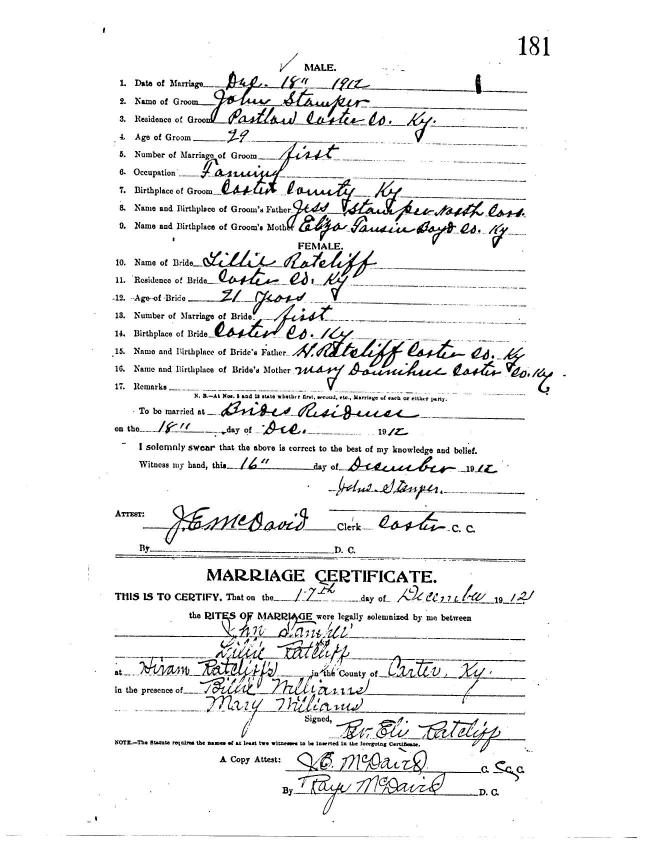 181
MALE.
1. Date of Marriage Dec. 18" 1912
2. Name of Groom John Stamper
3. Residence of Groom Carter Co. Ky.
4. Age of Groom 29
5. Number of Marriage of Groom first
6. Occupation Farming
7. Birthplace of Groom Carter County Ky
8. Name and Birthplace of Groom's Father Jess Stamper North Caro.
9. Name and Birthplace of Groom's Mother Eliza Boyd Co. Ky
FEMALE.
10. Name of Bride Lillie Ratcliff
11. Residence of Bride Carter Co. Ky
12. Age of Bride 21 years
13. Number of Marriage of Bride first
14. Birthplace of Bride Carter Co. Ky
15. Name and Birthplace of Bride's Father H. Ratcliff Carter Co. Ky
16. Name and Birthplace of Bride's Mother Mary Carter Co. Ky
17. Remarks
N. B.—At Nos. 5 and 13 state whether first, second, etc., Marriage of each or either party.
To be married at Brides Residence
on the 18" day of Dec. 1912
I solemnly swear that the above is correct to the best of my knowledge and belief.
Witness my hand, this 16" day of December 1912
John Stamper.
ATTEST: J.E. McDavid Clerk Carter C. C.
By D. C.
MARRIAGE CERTIFICATE.
THIS IS TO CERTIFY, That on the 17th day of December 1912
the RITES OF MARRIAGE were legally solemnized by me between
John
Lillie Ratcliff
at Hiram Ratcliff's in the County of Carter, Ky.
in the presence of Billie Williams
Mary Williams
Signed, Rv. Eli Ratcliff
NOTE.—The Statute requires the names of at least two witnesses to be inserted in the foregoing Certificate.
A Copy Attest: J.E. McDavid C. C.
By McDavid D. C.